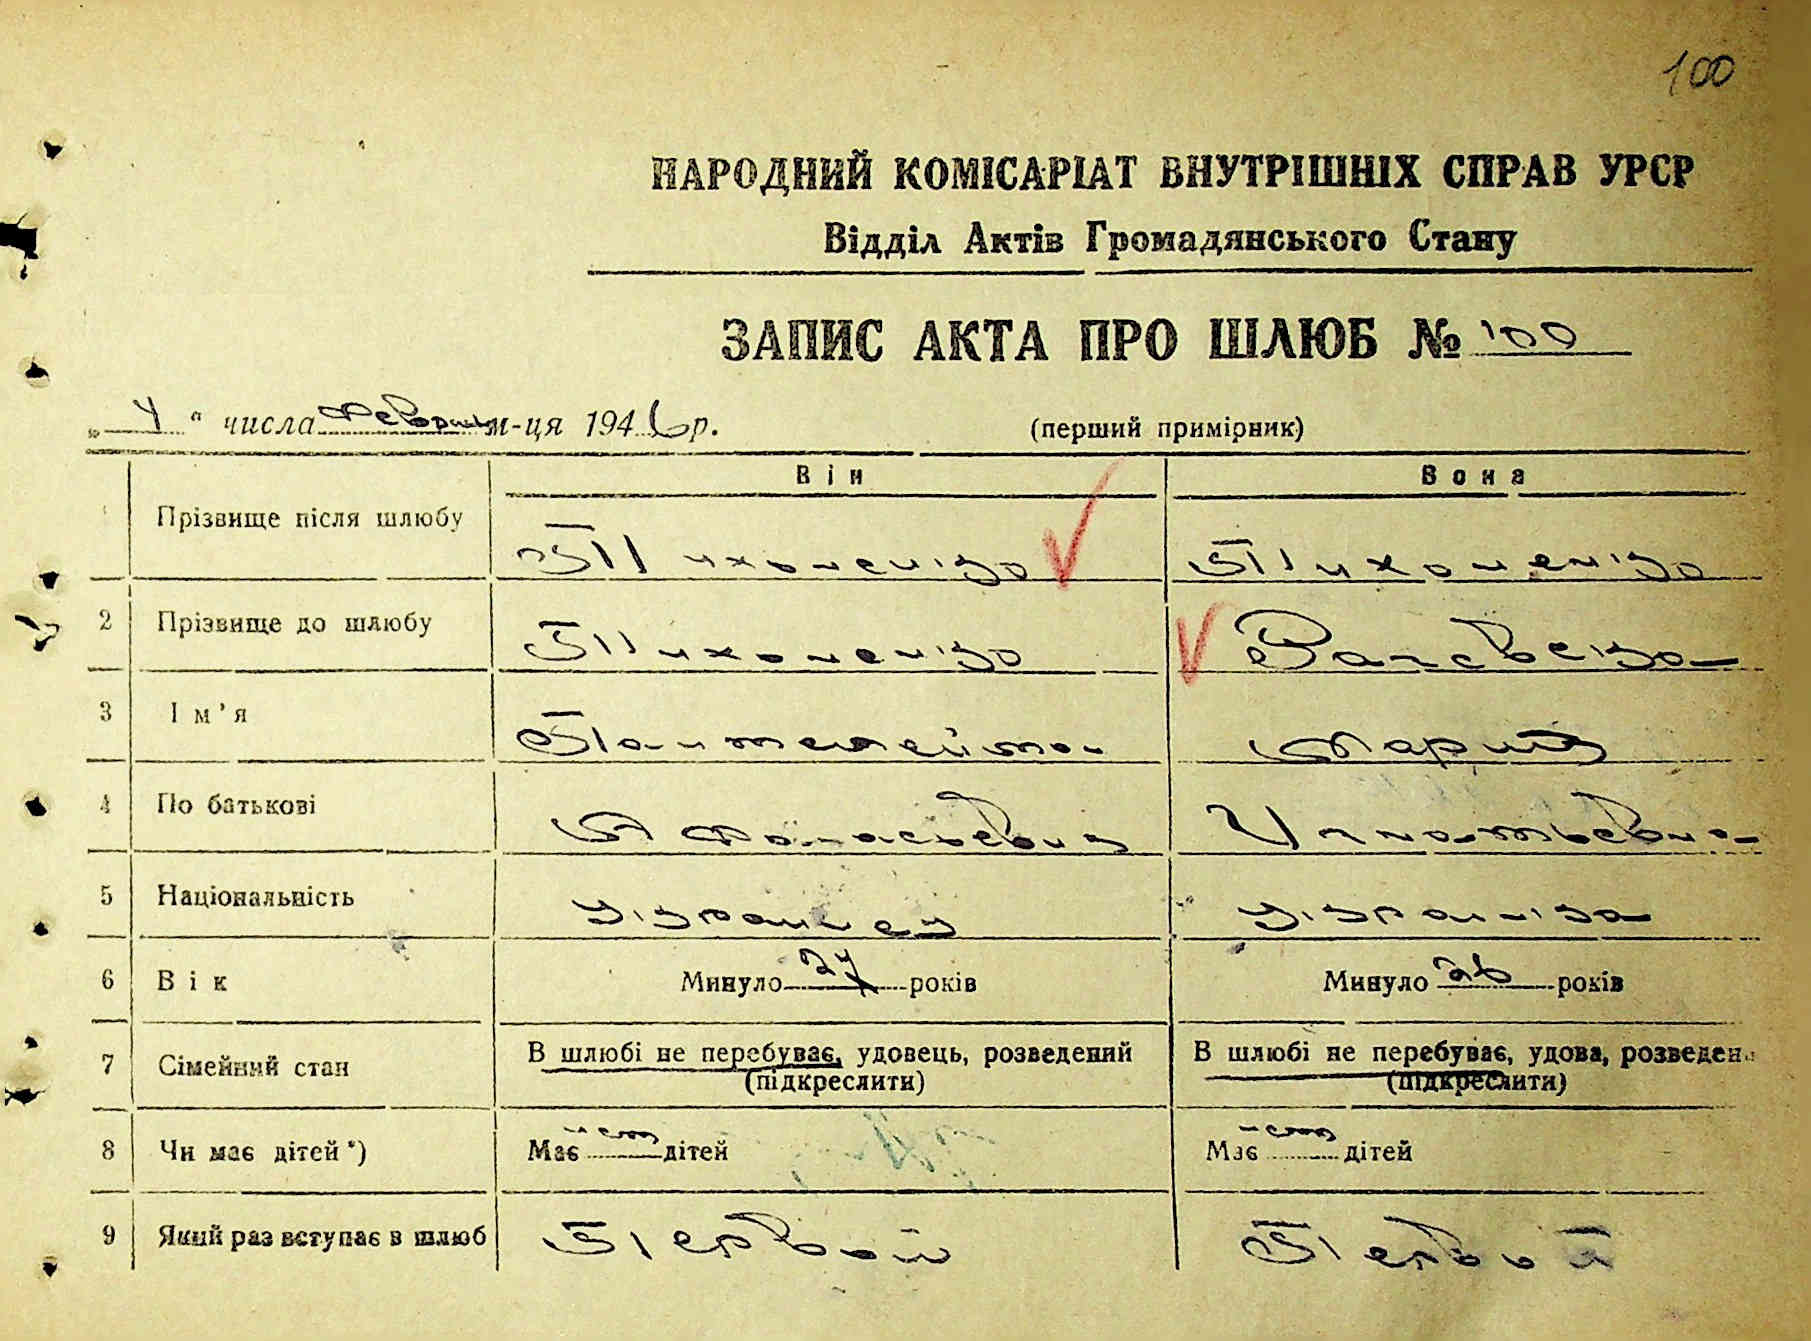 100
НАРОДНИЙ КОМІСАРІАТ ВНУТРІШНІХ СПРАВ УРСР
Відділ Актів Громадянського Стану
ЗАПИС АКТА ПРО ШЛЮБ № 100
„ 4 " числа Февраля м-ця 1946 р. (перший примірник)
Він Вона
Прізвище після шлюбу Тихоненко Тихоненко
2 Прізвище до шлюбу Тихоненко
3 Ім'я Пантелеймон Мария
4 По батькові Афанасьевич Игнатьевна
5 Національність Украинец Украинка
6 Вік Минуло 27 років Минуло 26 років
7 Сімейний стан В шлюбі не перебуває, удовець, розведений В шлюбі не перебуває, удова, розведена
(підкреслити) (підкреслити)
8 Чи має дітей *) Має нет дітей Має нет дітей
9 Який раз вступає в шлюб Первый Первый